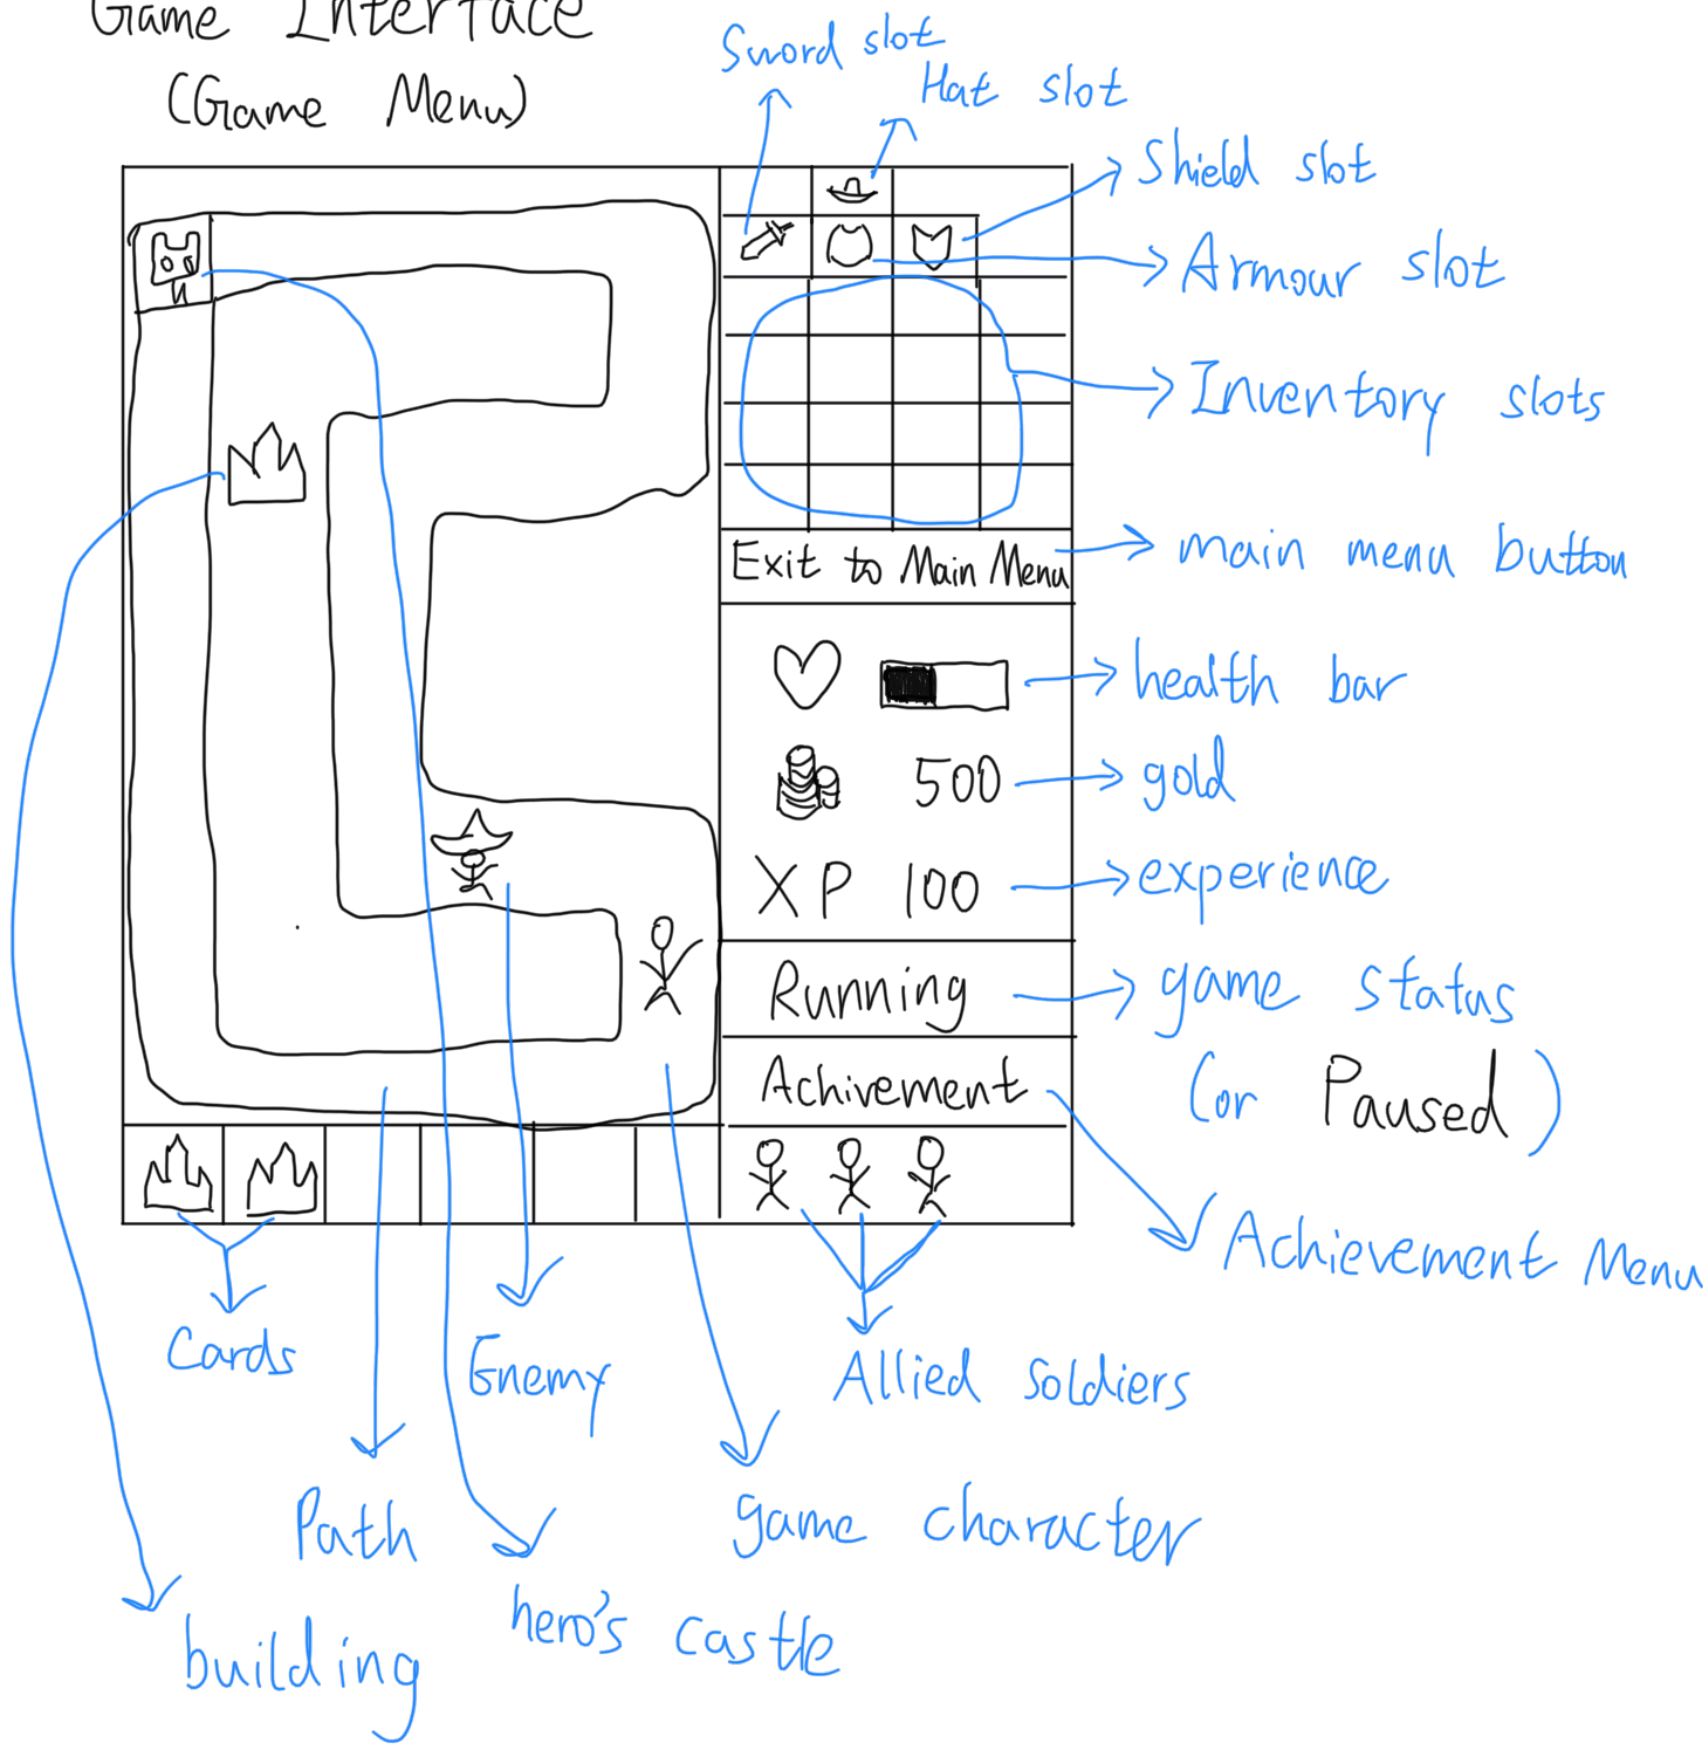 Game Interface
(Game Menu)
Sword slot
Hat slot
Shield slot
Armour slot
Inventory slots
Exit to Main Menu
main menu button
health bar
500
gold
XP 100
experience
Running
game status
(or Paused)
Achivement
Achievement Menu
Cards
Enemy
Allied Soldiers
Path
game character
hero's castle
building